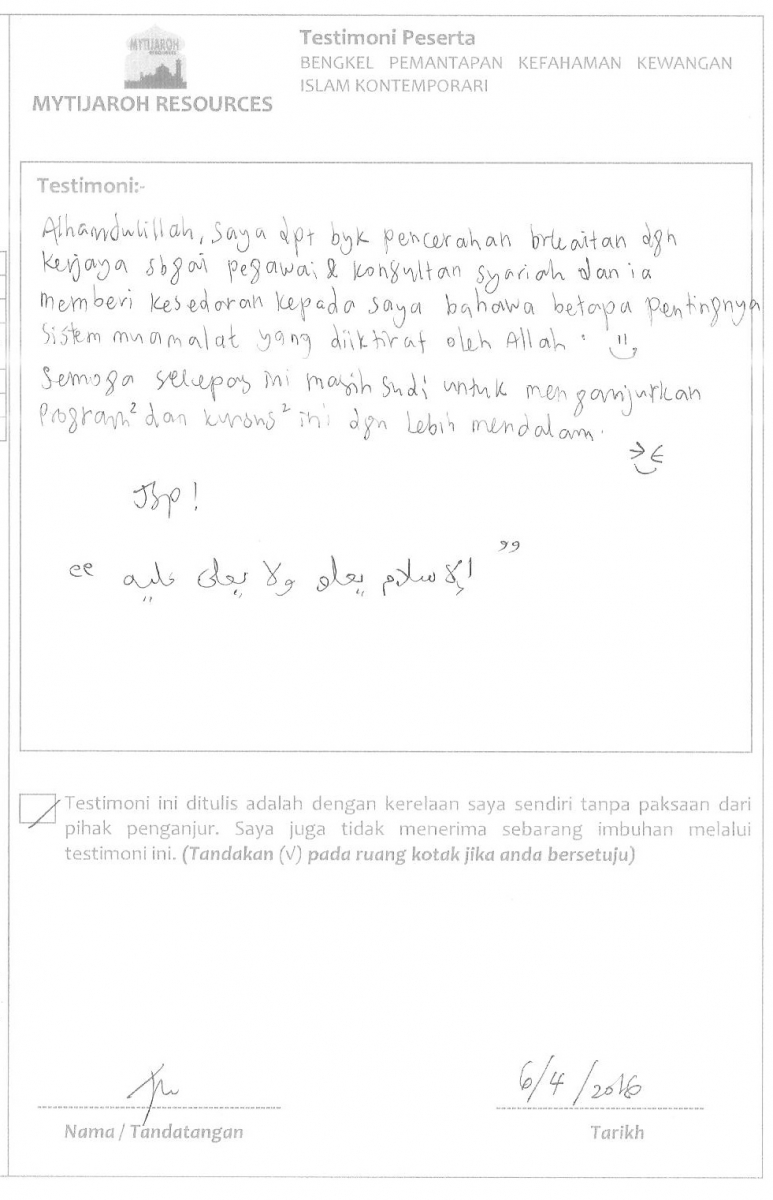 MYTIJAROH
MYTIJAROH RESOURCES
Testimoni Peserta
BENGKEL PEMANTAPAN KEFAHAMAN KEWANGAN
ISLAM KONTEMPORARI
Testimoni:-
Alhamdulillah, saya dpt byk pencerahan brkaitan dgn
kerjaya sbgai pegawai & konsultan syariah dan ia
memberi kesedaran kepada saya bahawa betapa pentingnya
sistem muamalat yang diiktiraf oleh Allah.
Semoga selepas ini masih sudi untuk menganjurkan
Program² dan kursus² ini dgn lebih mendalam.
" الإسلام يعلو ولا يعلى عليه "
Testimoni ini ditulis adalah dengan kerelaan saya sendiri tanpa paksaan dari
pihak penganjur. Saya juga tidak menerima sebarang imbuhan melalui
testimoni ini. (Tandakan (√) pada ruang kotak jika anda bersetuju)
6/4/2016
Nama / Tandatangan
Tarikh